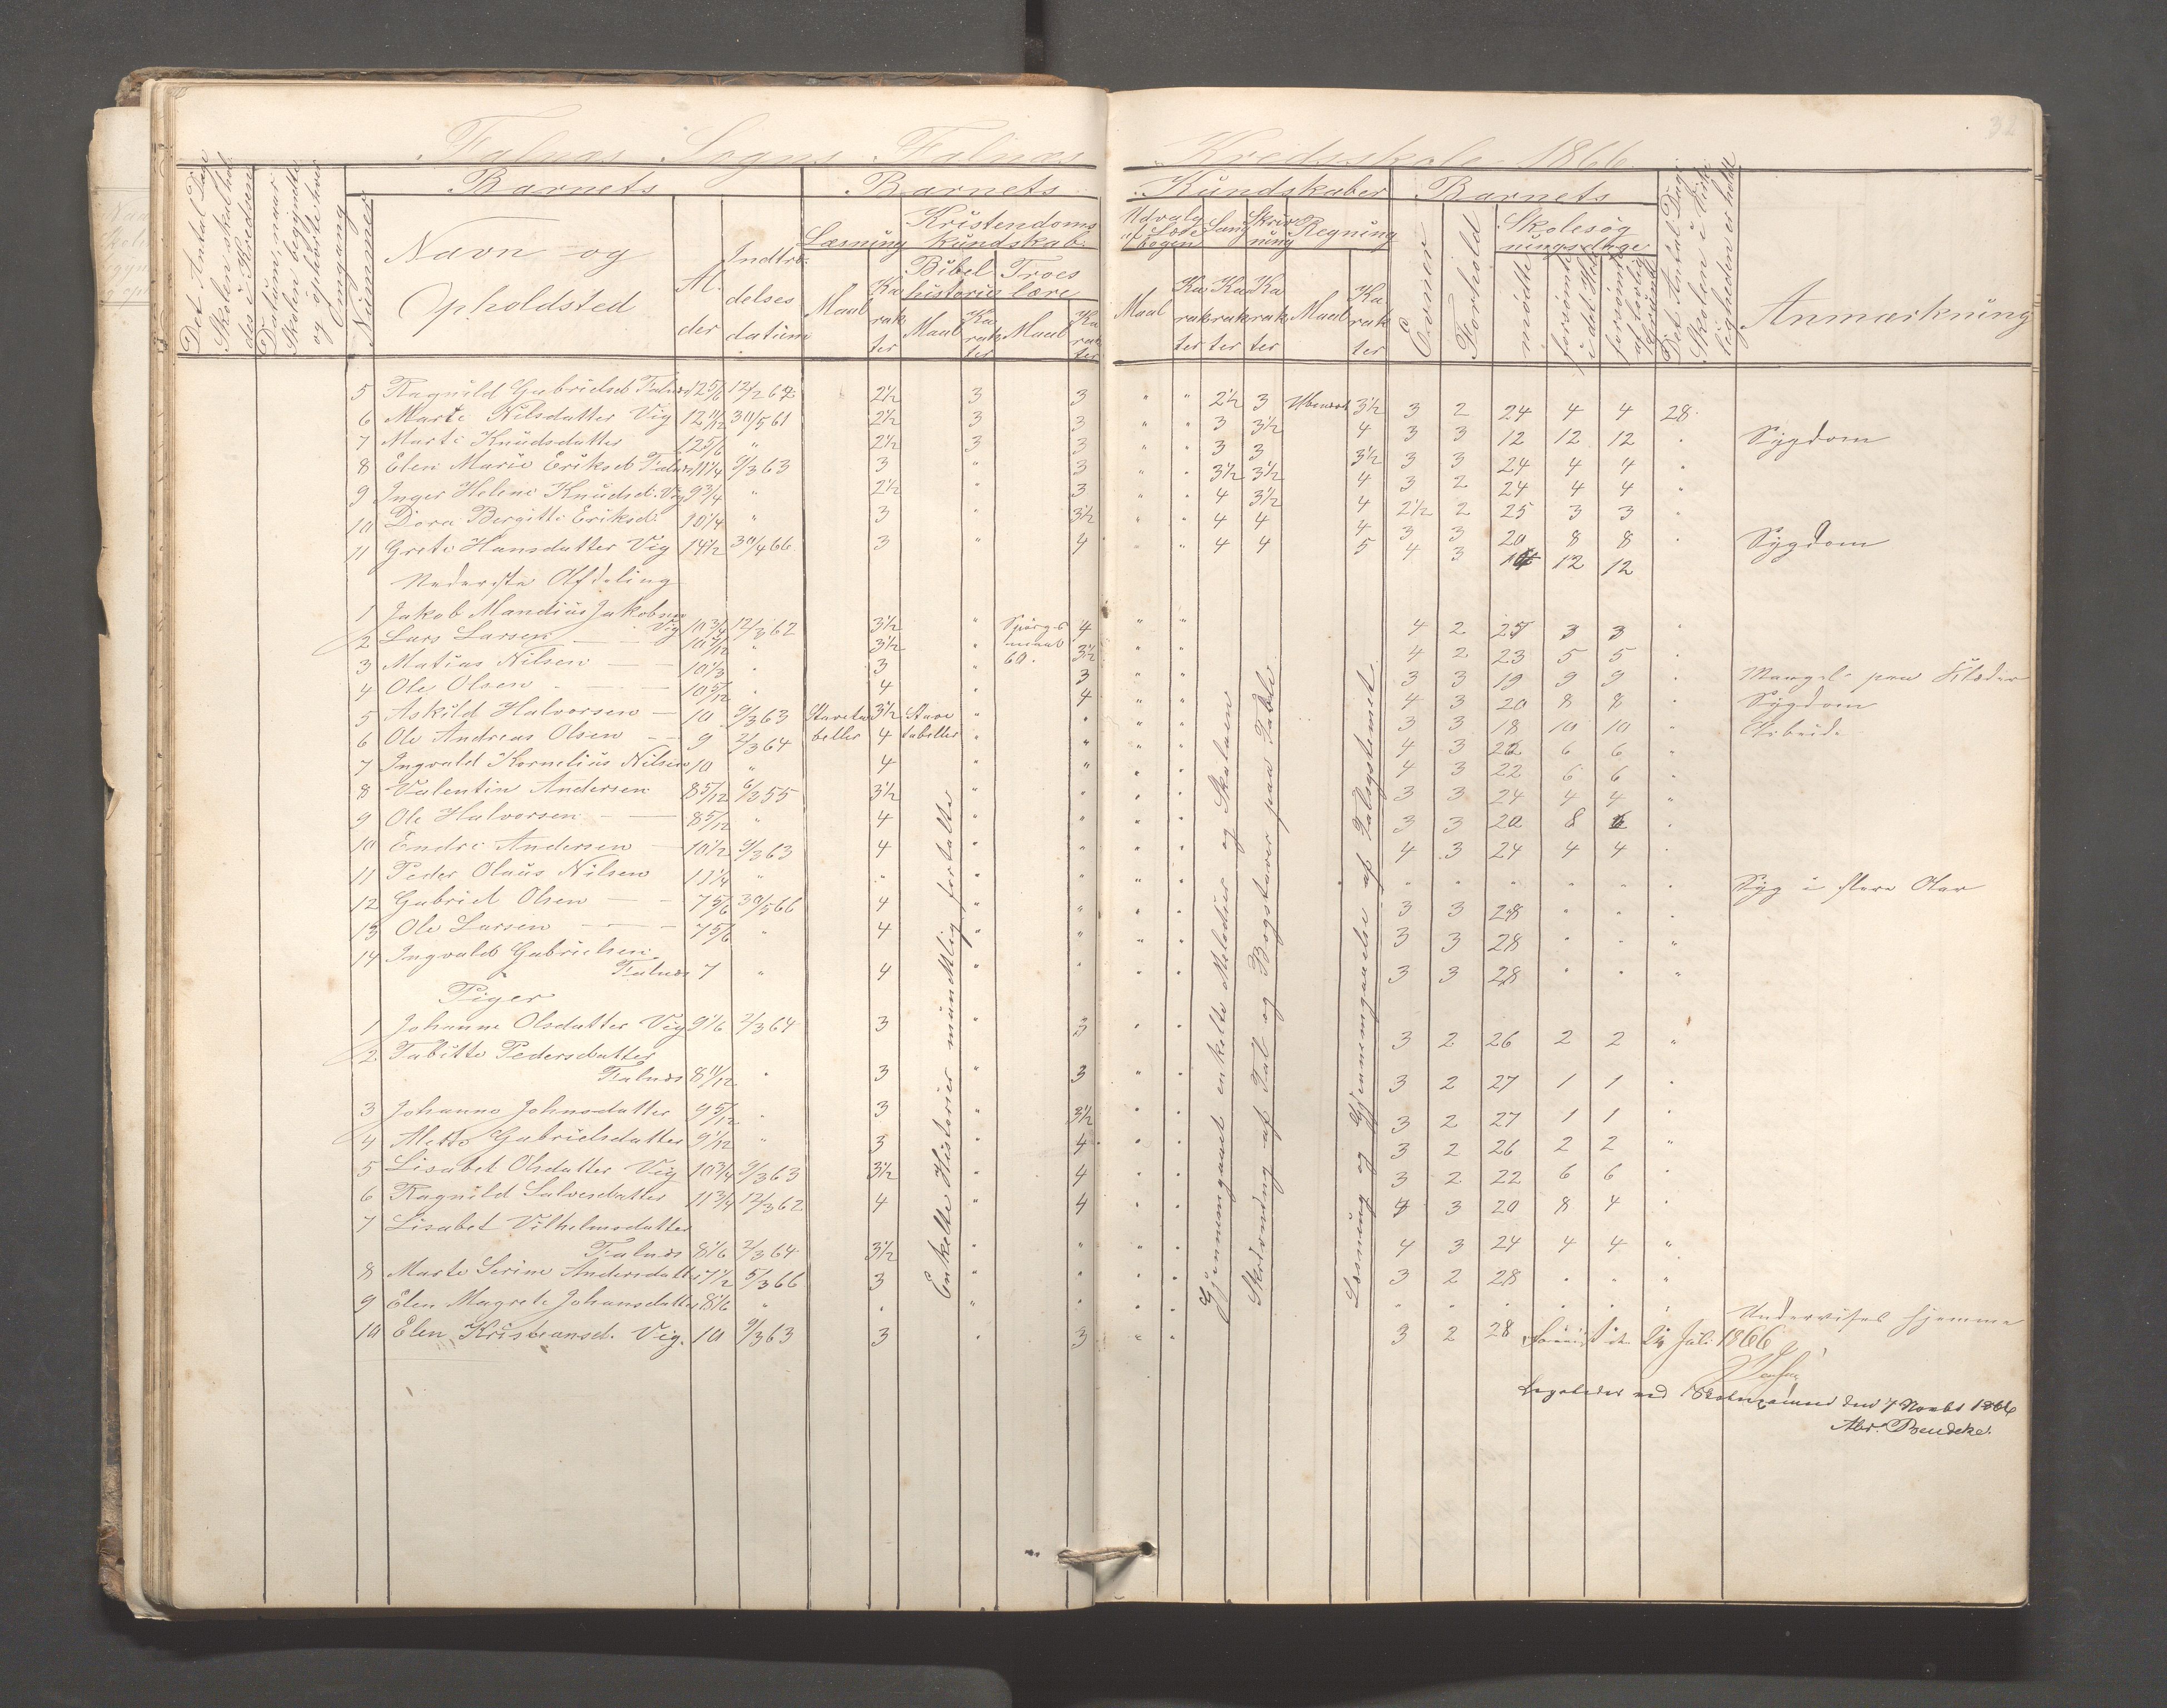 Falnæs Sogns Falnæs Kredsskole 1866
32
Det Antal Dage Skolen skal holdes i Kredsen
Datum, naar Skolen begyndte og ophørte hver Omgang
Nummer
Barnets
Navn og Opholdsted
Alder
Indtrædelses datum
Barnets Kundskaber
Læsning
Maal
Karakter
Kristendoms kundskab
Bibel historie
Maal
Karakter
Troes lære
Maal
Karakter
Udvalg af Læsebogen
Maal
Karakter
Sang
Karakter
Skrivning
Karakter
Regning
Maal
Karakter
Barnets
Evner
Forhold
Skolesøgningsdage
mødte
forsømte i det Hele
forsømte af lovlig Grund
Det Antal Dage Skolen i Virkeligheden er holdt
Anmærkning
5 Ragnild Gabrielsd Falnæs 12 5/6 12/2 62 2½ 3 3 " " 2½ 3 3½ 3 2 24 4 4 28
6 Marte Nilsdatter Vig 12 11/12 30/5 61 2½ 3 3 " " 3 3½ 4 3 3 12 12 12 " Sygdom
7 Marte Knudsdatter 12 5/6 " 2½ 3 3 " " 3 3 3½ 3 3 24 4 4 "
8 Elen Marie Eriksd Falnæs 11¼ 9/3 63 3 " 3 " " 3½ 3½ 4 3 2 24 4 4 "
9 Inger Helene Knudsd. Vig 9¾ " 2½ " 3 " " 4 3½ 4 2½ 2 25 3 3 "
10 Dora Bergitte Eriksd. 10¼ " 3 " 3½ " " 4 4 4 3 3 20 8 8 " Sygdom
11 Grete Hansdatter Vig 14½ 30/4 66 3 " 4 " " 4 4 5 4 3 12 12
Nederste Afdeling
1 Jakob Mandius Jakobsen Vig 10¾ 12/3 62 3½ " Spørgsmaal 60. 4 " " 4 2 25 3 3 "
2 Lars Larsen 10 5/12 " 3½ " 3½ " " 4 2 23 5 5 "
3 Matias Nilsen 10⅓ " 3 " 3 " " 3 3 19 9 9 " Mangel paa Klæder
4 Ole Olsen 10 5/12 " 4 " 4 " " 4 3 20 8 8 " Sygdom
5 Askild Halvorsen 10 9/3 63 Stavetabeller 3½ Stavetabeller " " " " 3 3 18 10 10 " Arbeide
6 Ole Andreas Olsen 9 2/3 64 4 " " " " 4 3 22 6 6 "
7 Ingvald Kornelius Nilsen 10 " 4 " " " " 4 3 22 6 6 "
8 Valentin Andersen 8 5/12 6/3 55 3½ " " " " 3 3 24 4 4 "
9 Ole Halvorsen 8 5/12 " 4 " " " " 3 3 20 8 6 "
10 Endre Andersen 10½ 9/3 63 4 " " " " 4 3 24 4 4 "
11 Peder Olaus Nilsen 11¼ " " " " " " " " " " " " Syg i flere Aar
12 Gabriel Olsen 7 5/6 30/5 66 4 " " " " 3 3 28 " " "
13 Ole Larsen 7 5/6 " 4 " " " " 3 3 28 " " "
14 Ingvald Gabrielsen Falnæs 7 " 4 " " " " 3 3 28 " " "
Piger
1 Johanne Olsdatter Vig 9⅙ 2/3 64 3 " 3 " " 3 2 26 2 2 "
2 Tabitte Pedersdatter Falnæs 8 11/12 " 3 " 3 " " 3 2 27 1 1 "
3 Johanne Johnsdatter 9 5/12 " 3 " 3½ " " 3 2 27 1 1 "
4 Mette Gabrielsdatter 9 1/12 " 3 " 4 " " 3 2 26 2 2 "
5 Lisabet Olsdatter Vig 10¾ 9/3 63 3½ " 4 " " 3 2 22 6 6 "
6 Ragnild Salvesdatter 11¾ 12/3 62 4 " 4 " " 4 3 20 8 4 "
7 Lisabet Vilhelmsdatter Falnæs 8⅙ 2/3 64 3½ " " " " 4 3 24 4 4 "
8 Marte Serine Andersdatter 7½ 5/3 66 3 " " " " 3 2 28 " " "
9 Elen Magrete Johansdatter 8⅙ " " " " " " " " " " " " Undervises hjemme
10 Elen Kristiansd. Vig. 10 9/3 63 3 " 3 " " 3 2 28
Enkelte Historier mundtlig fortalte
Gjennemgaaet enkelte Melodier og Skalaen
Skrivning af Tal og Bogstaver paa Tavle
Læsning og Gjennemgaaelse af Talsystemet
24 Juli 1866
ved Skoleexamen den 7 Novbr 1866
Abr. Bendeke.